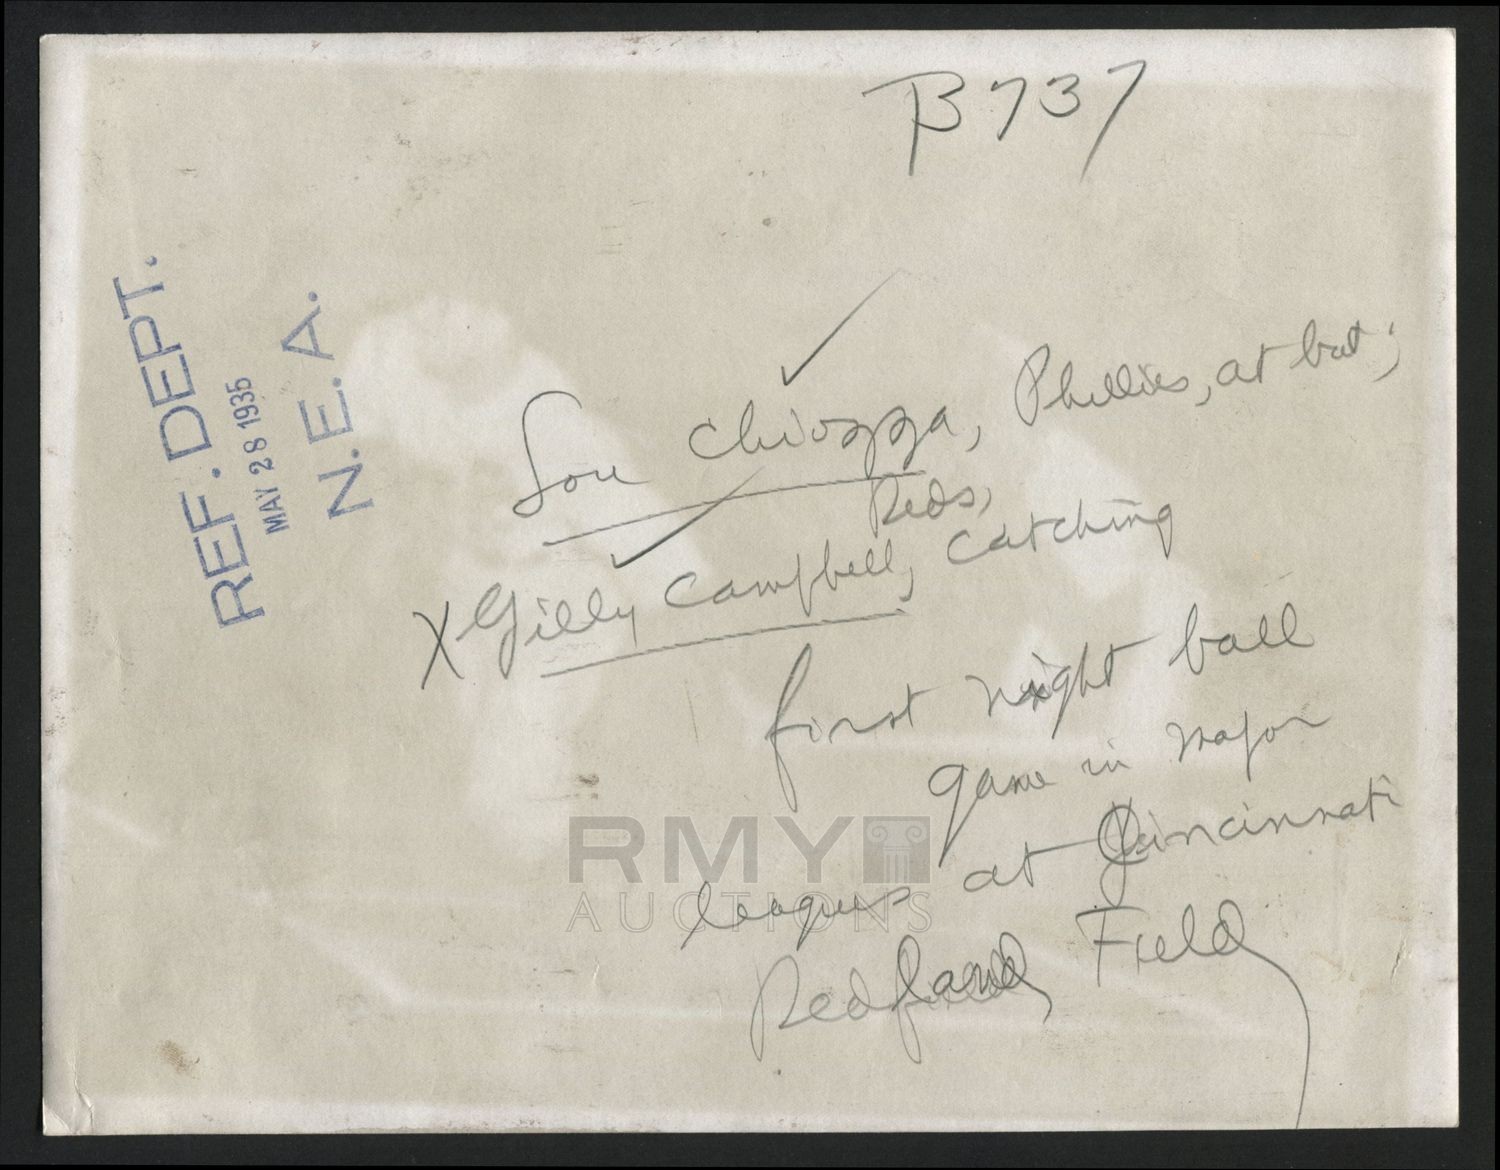 B737
REF. DEPT.
MAY 28 1935
N.E.A.
Lou Chiozza, Phillies, at bat;
Reds,
X Gilly Campbell, catching
first night ball
game in major
leagues at Cincinnati
Redland Field
RMY
AUCTIONS